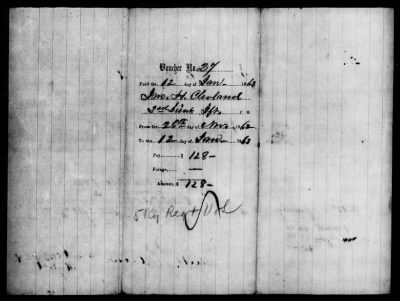 Voucher No. 27
Paid the 12 day of Jan 1863
Jno. H. Clevland
2nd Lieut Ift.
From the 26th day of Nov. 1862
To the 12 day of Jan 1863
Pay, $ 128-
Forage,
Amount, $ 128-
5 Ky Regt Vol